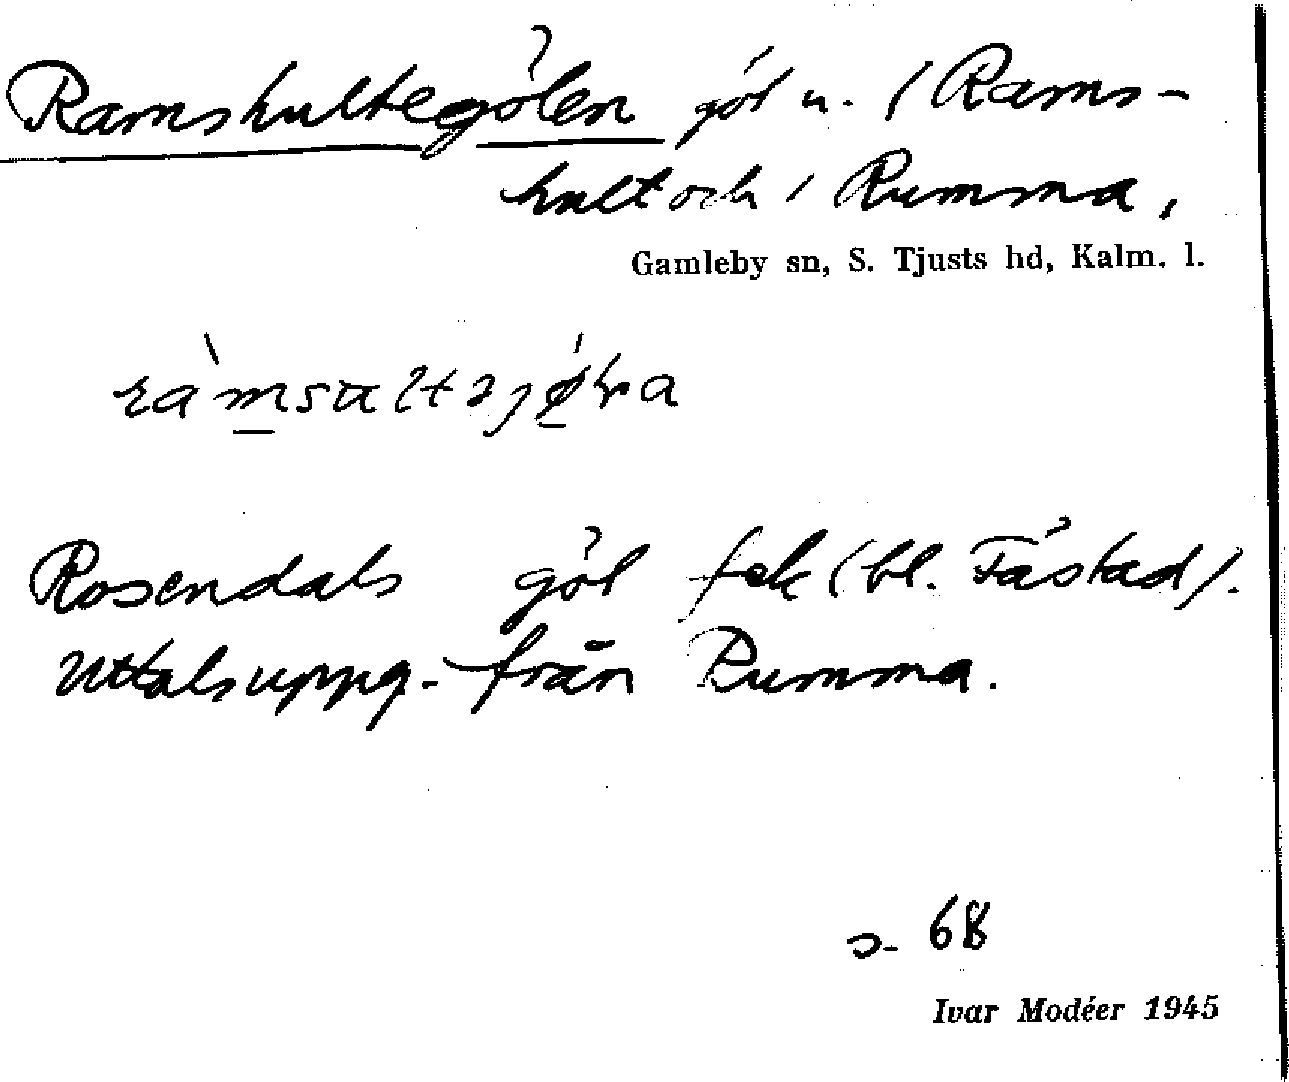 Ramshultegölen göl n. i Rams-
hult och i Rumma,
Gamleby sn, S. Tjusts hd, Kalm. l.
Rosendals göl fek (bl. Tåstad).
Uttalsuppg. från Rumma.
s. 68
Ivar Modéer 1945